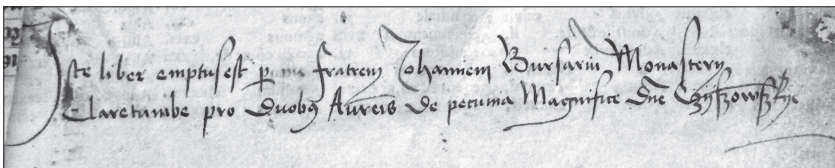 Iste liber emptus est p fratrem Johannem Bursariu Monastery
Claretumbe pro Duobꝫ Aureis de pecunia Magnifice Dne